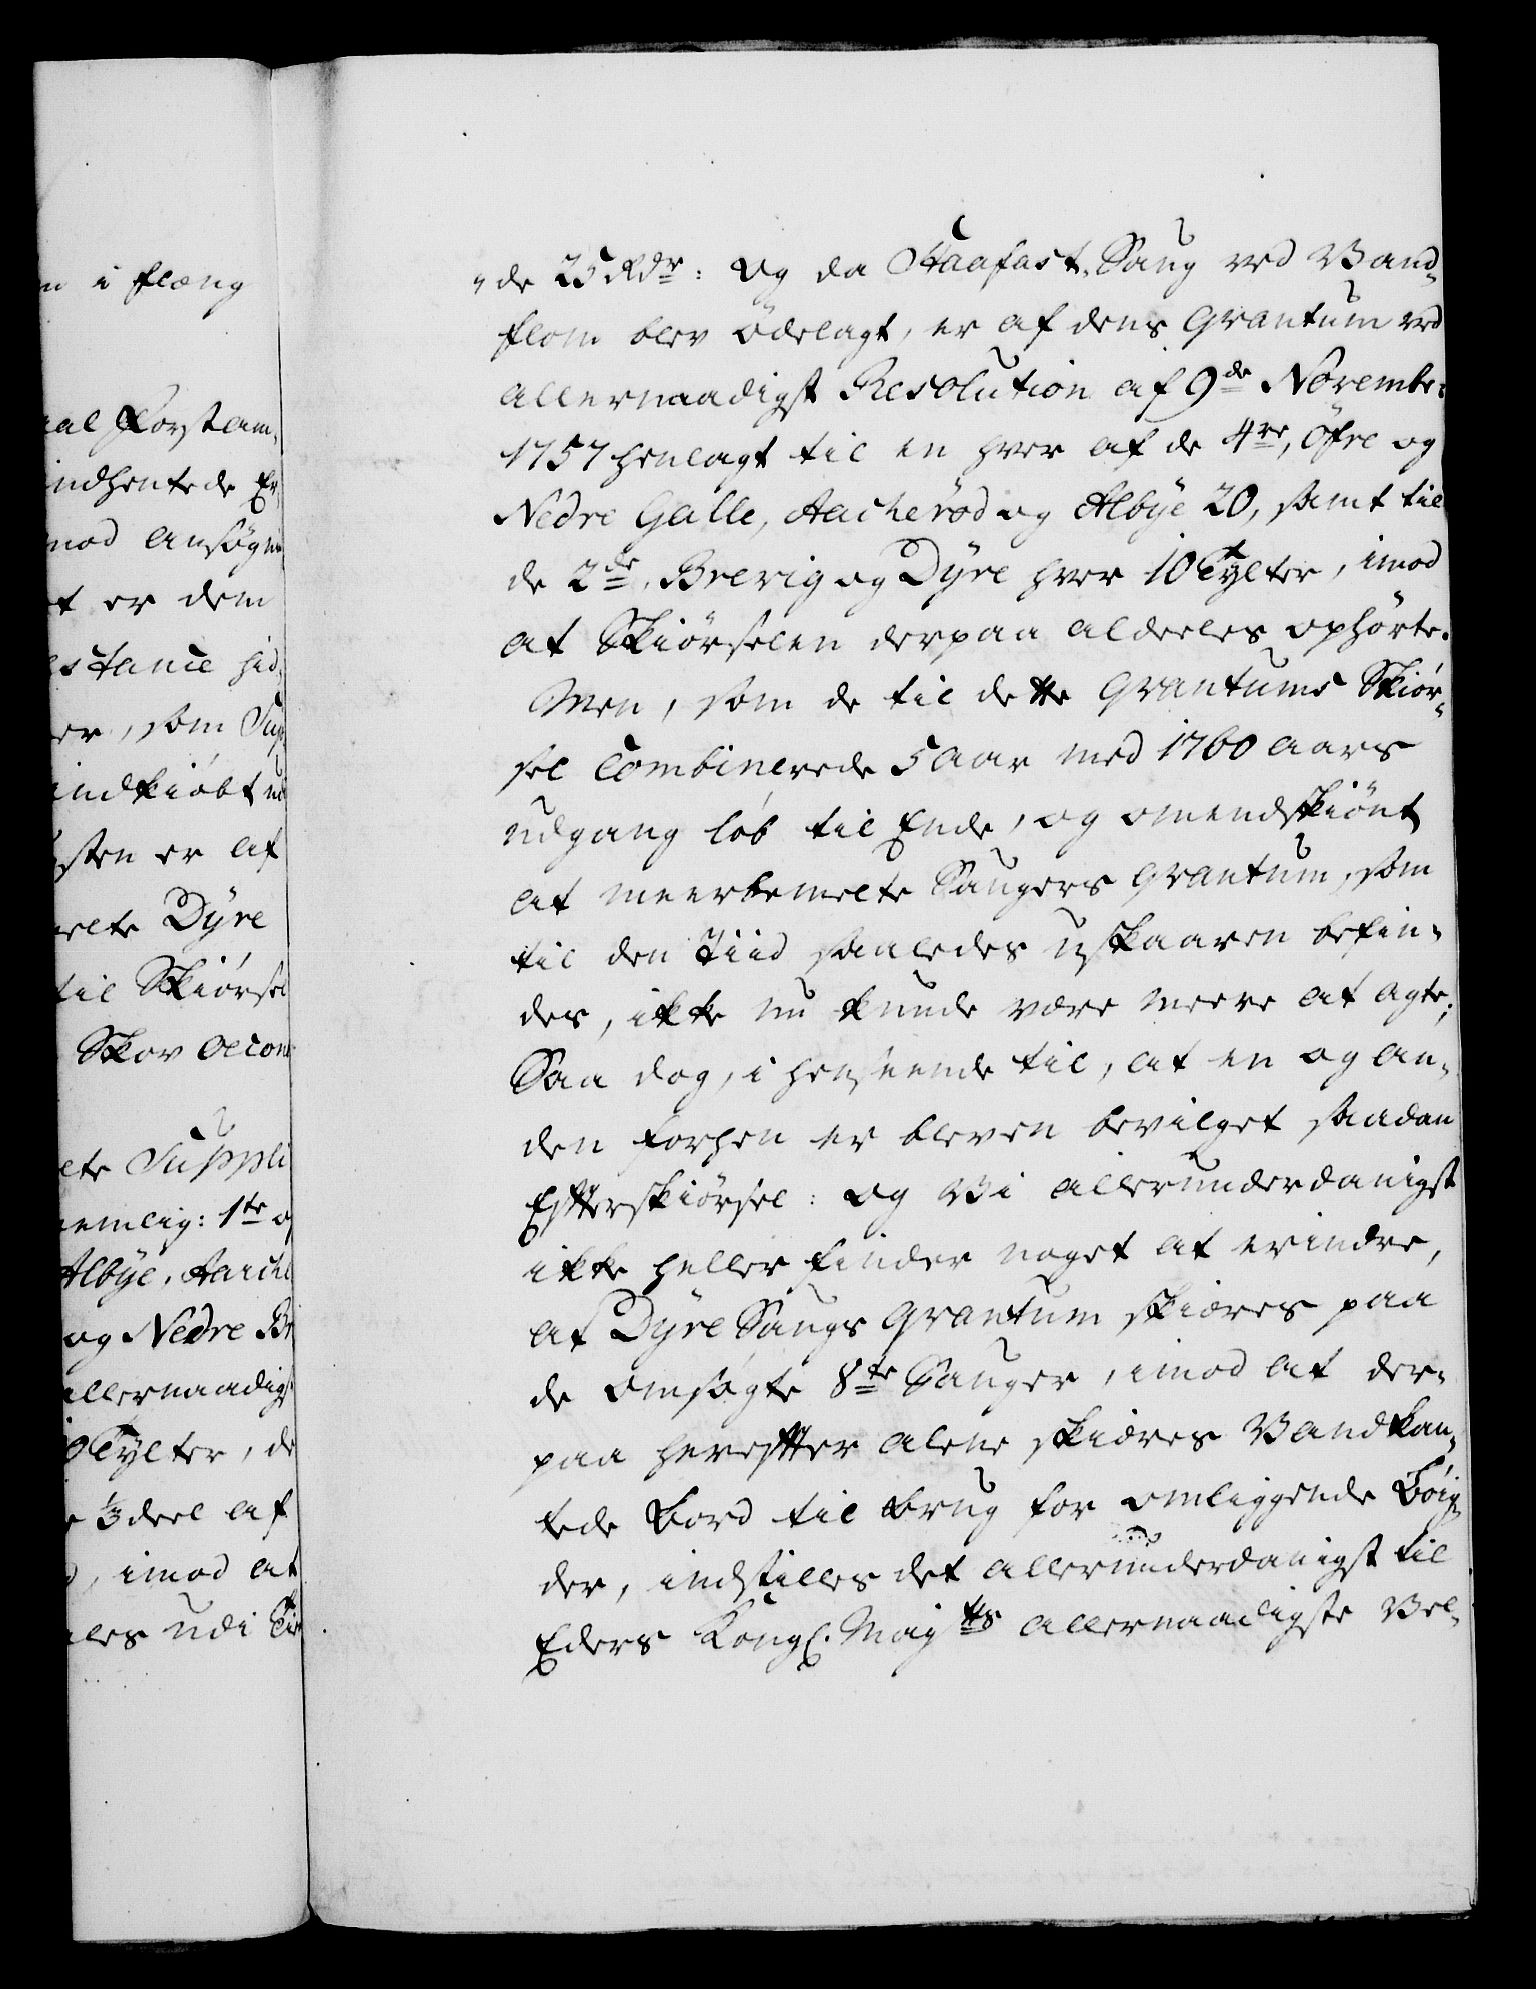 n i flæng
al Forstam-
indhentede Er-
mod ansøgni
t er dem
stance hid-
er, som Sup-
indkiöbt
sten er af
elte Dyre
til Skiørsel
Skov Oecon
lte Suppli
nemlig: 1te o
Albye, Aache
og Nedre Br
allernaadigs
0 Tylter, de
⅓deel af
, imod at
ales udi Ti
de 25 Rdr: Og da Haafast-Saug ved Vand-
flom blev ödelagt, er af dens Qvantum ved
allernaadigst Resolution af 9de Novembr:
1757 henlagt til en hver af de 4re, Öfre og
Nedre Galle, Aacheröd og Albye 20, samt til
de 2de, Brevig og Dyre hver 10 Tylter, imod
at Skiørselen derpaa aldeeles ophørte.
Men, som de til dette Qvantums Skiør-
sel combinerede 5 Aar med 1760 Aars
Udgang løb til Ende, og omendskiönt
at meerbemelte Saugers Qvantum, som
til den Tiid saaledes uskaaren befin-
des, ikke nu kunde være meere at agte;
Saa dog, i henseende til, at en og an-
den forhen er bleven bevilget saadan
Efterskiørsel: og Vi allerunderdanigst
ikke heller finder noget at erindre,
at Dyre Saugs Qvantum skiæres paa
de omsøgte 8te Sauger, imod at der-
paa herefter alene skiæres Vandkan-
tede Bord til brug for omliggende Bøig-
der, indstilles det allerunderdanigst til
Eders Kongl. Mayts allernaadigste Vel-